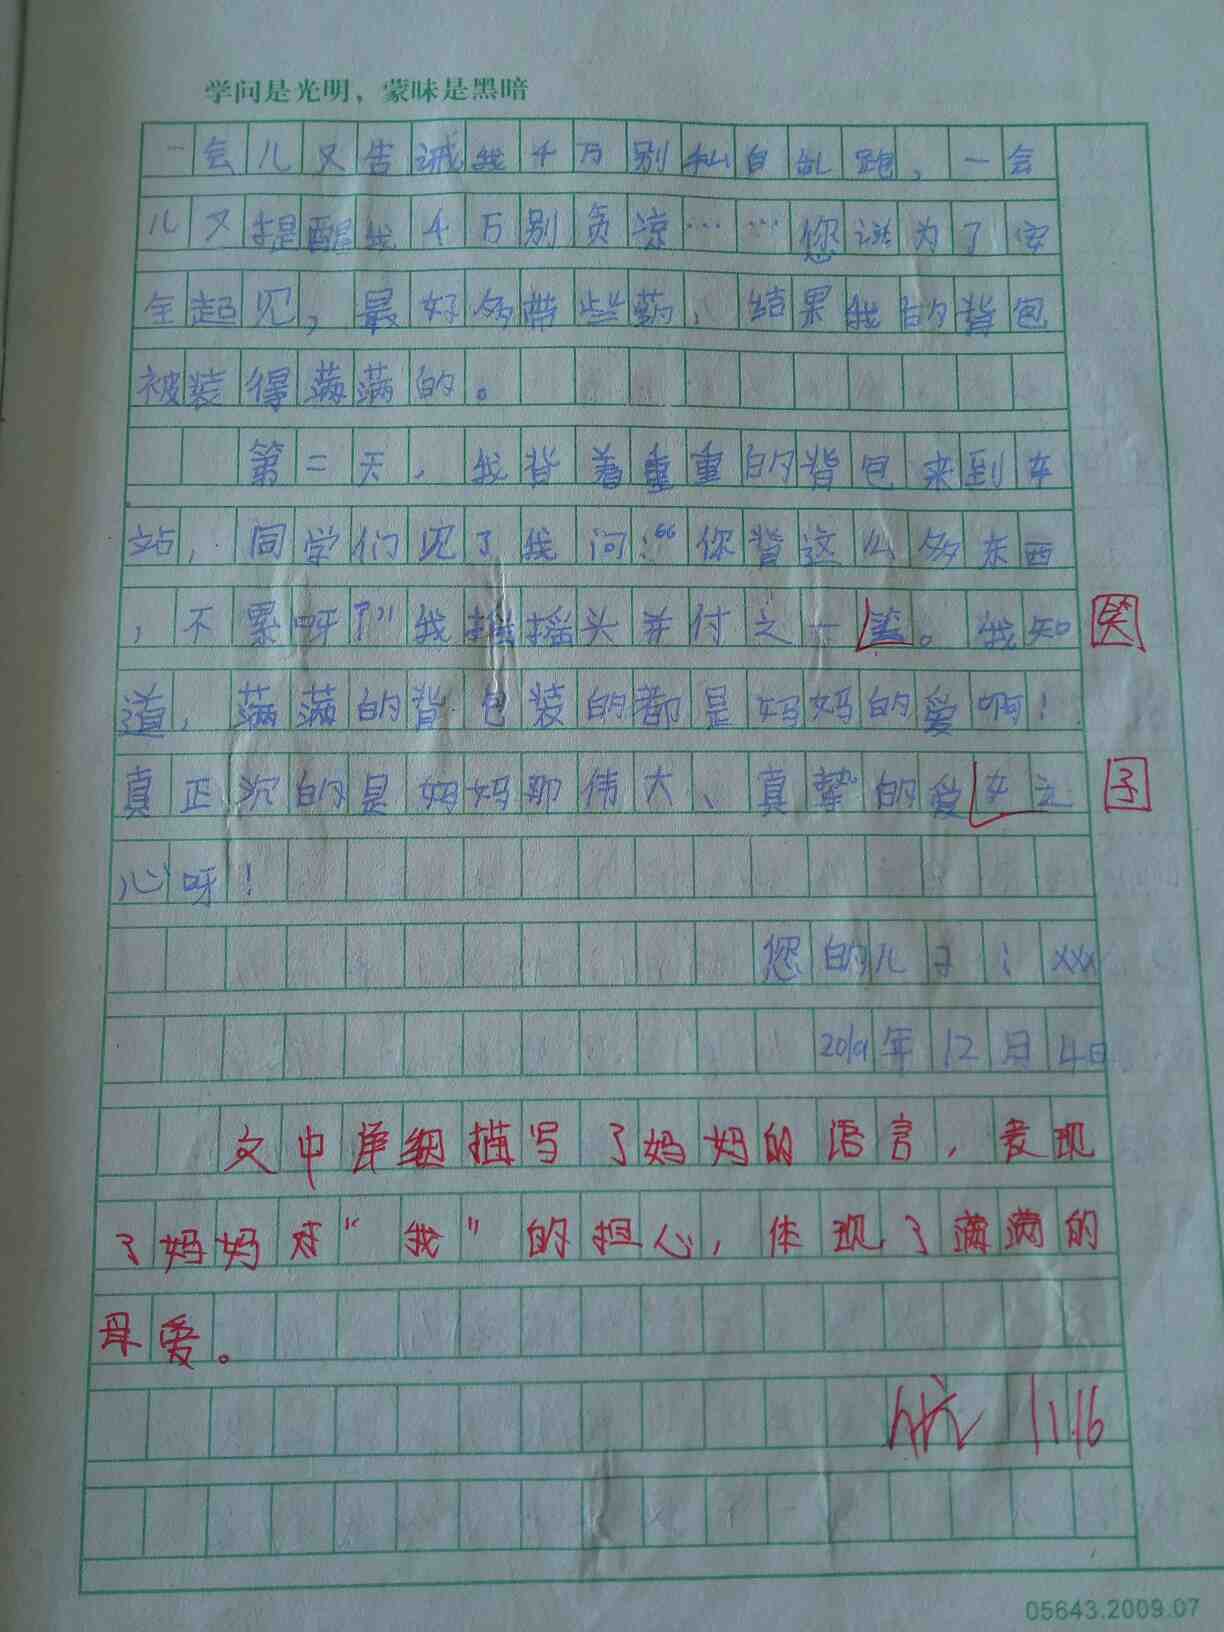 学问是光明，蒙昧是黑暗
一会儿又告诫我千万别私自乱跑，一会
儿又提醒我千万别贪凉……您说为了安
全起见，最好多带些药，结果我的背包
被装得满满的。
第二天，我背着重重的背包来到车
站，同学们见了我问：“你背这么多东西
，不累呀？”我摇摇头并付之一笑。我知
笑
道，满满的背包装的都是妈妈的爱啊！
真正沉的是妈妈那伟大、真挚的爱女之
子
心呀！
您的儿子：xxx
2019年12月4日
文中详细描写了妈妈的语言，表现
了妈妈对“我”的担心，体现了满满的
母爱。
11.16
05643.2009.07